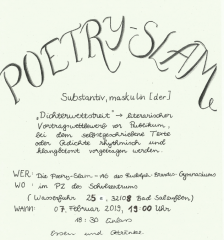 POETRY-SLAM
Substantiv, maskulin [der]
„Dichterwettstreit" → literarischer
Vortragswettbewerb vor Publikum,
bei dem selbstgeschriebene Texte
oder Gedichte rhythmisch und
klangbetont vorgetragen werden.
WER: Die Poetry-Slam-AG des Rudolph-Brandes-Gymnasiums
WO: im PZ des Schulzentrums
(Wasserfuhr 25 e, 32108 Bad Salzuflen)
WANN: 07. Februar 2019, 19:00 Uhr
18:30 Einlass
Essen und Getränke